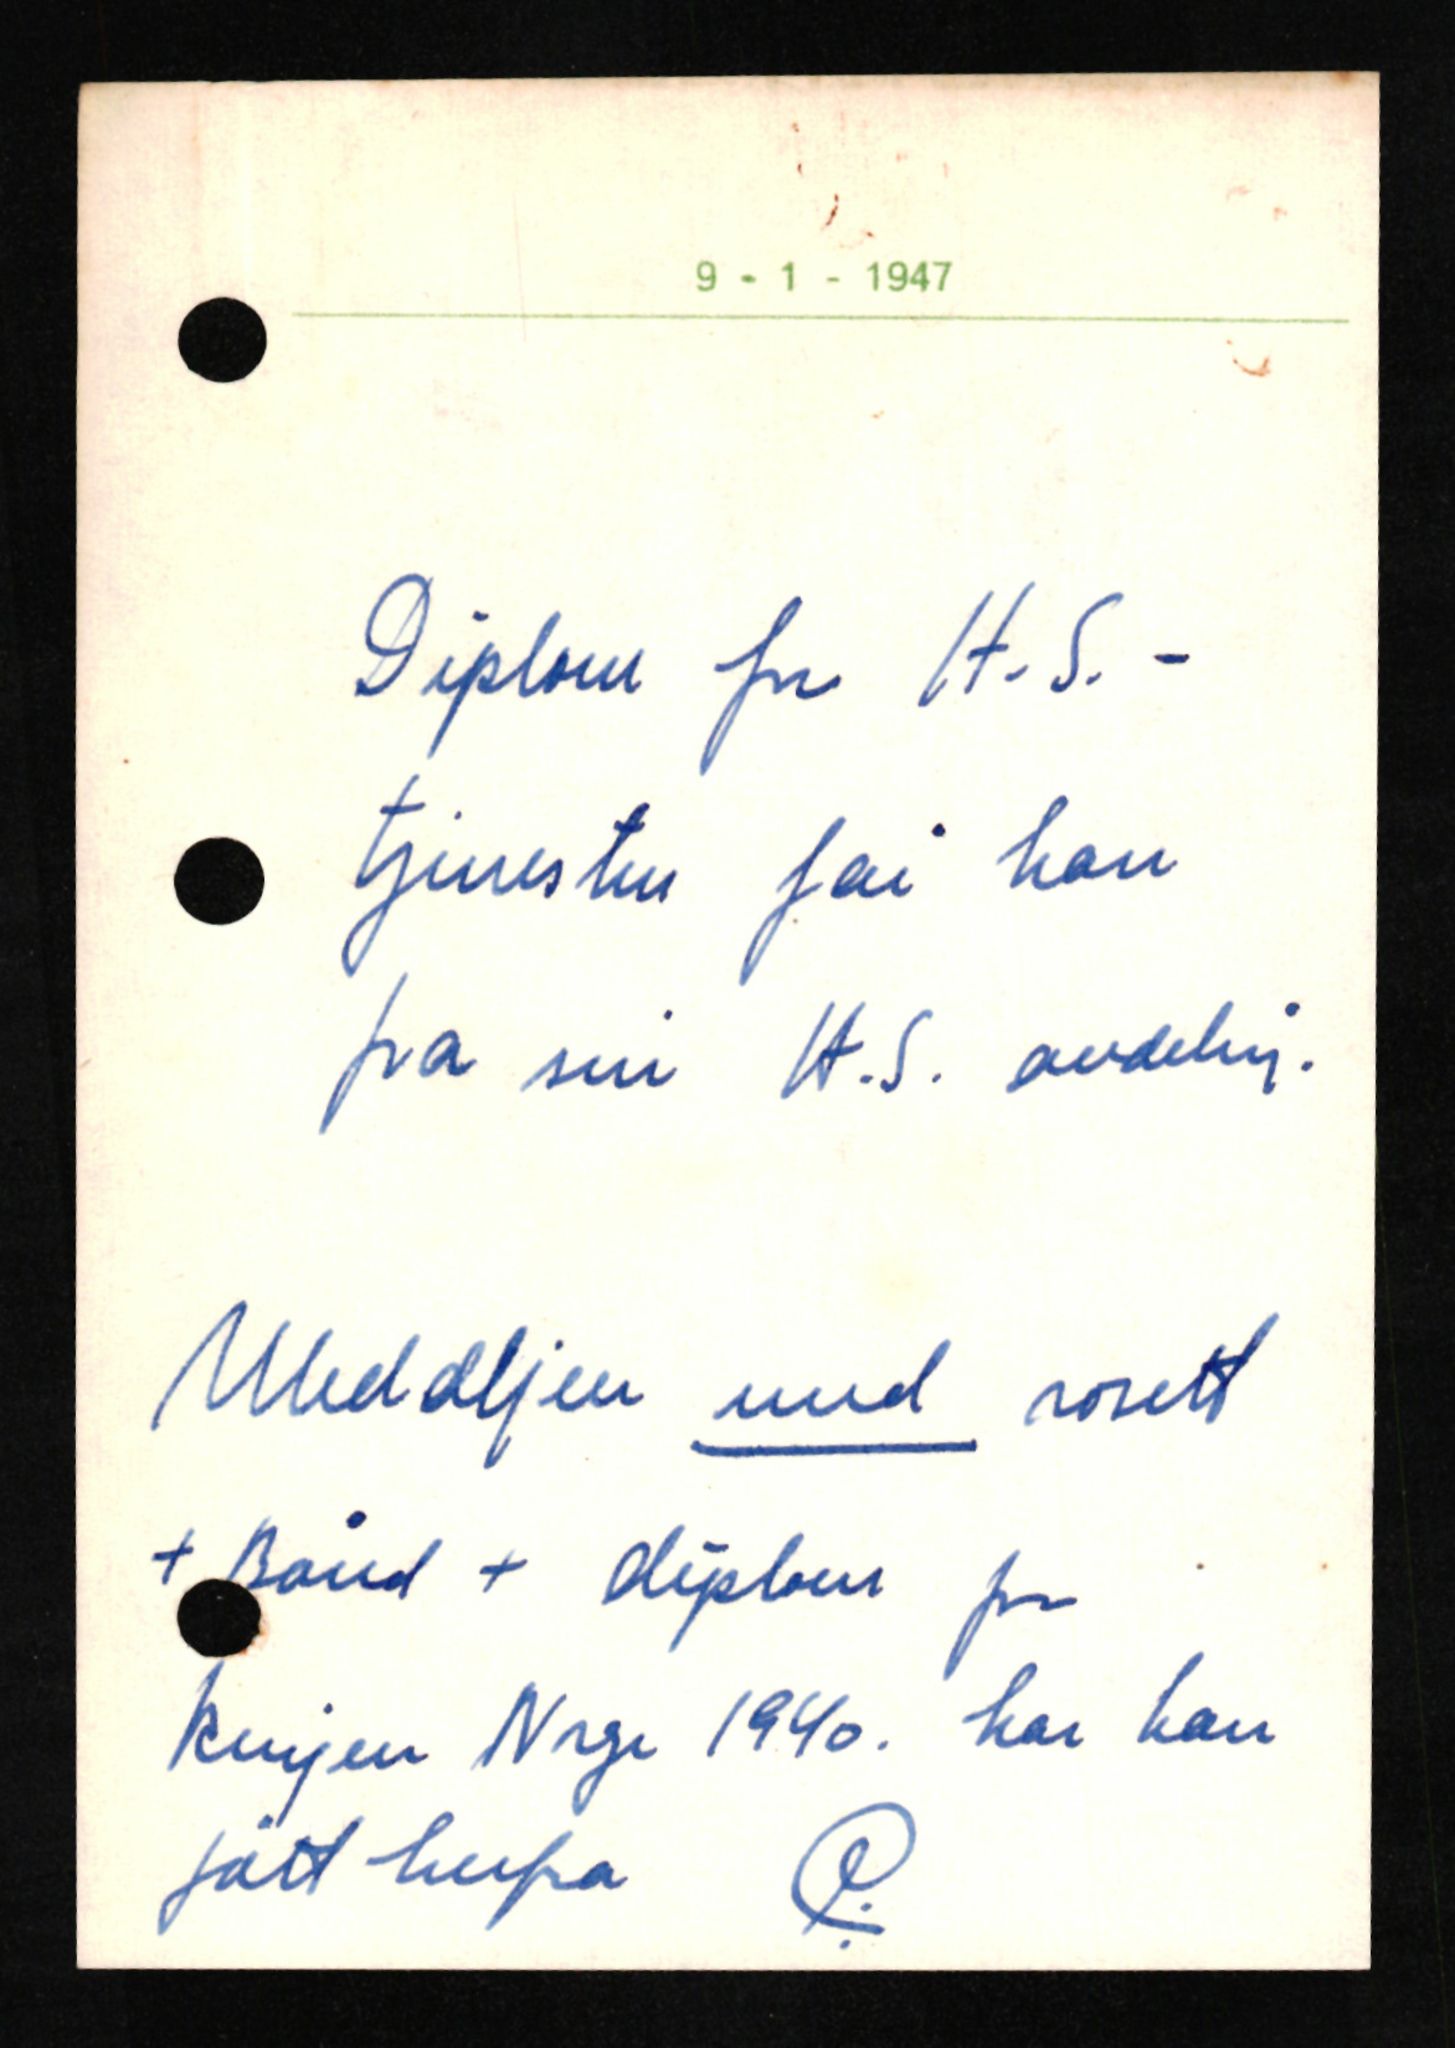 9 - 1 - 1947
Diplom for H.S. -
tjenesten får han
fra sin H.S. avdeling.
Meddljen med rosett
+ Bånd + diplom for
krigen Norge 1940. har han
fått herfra